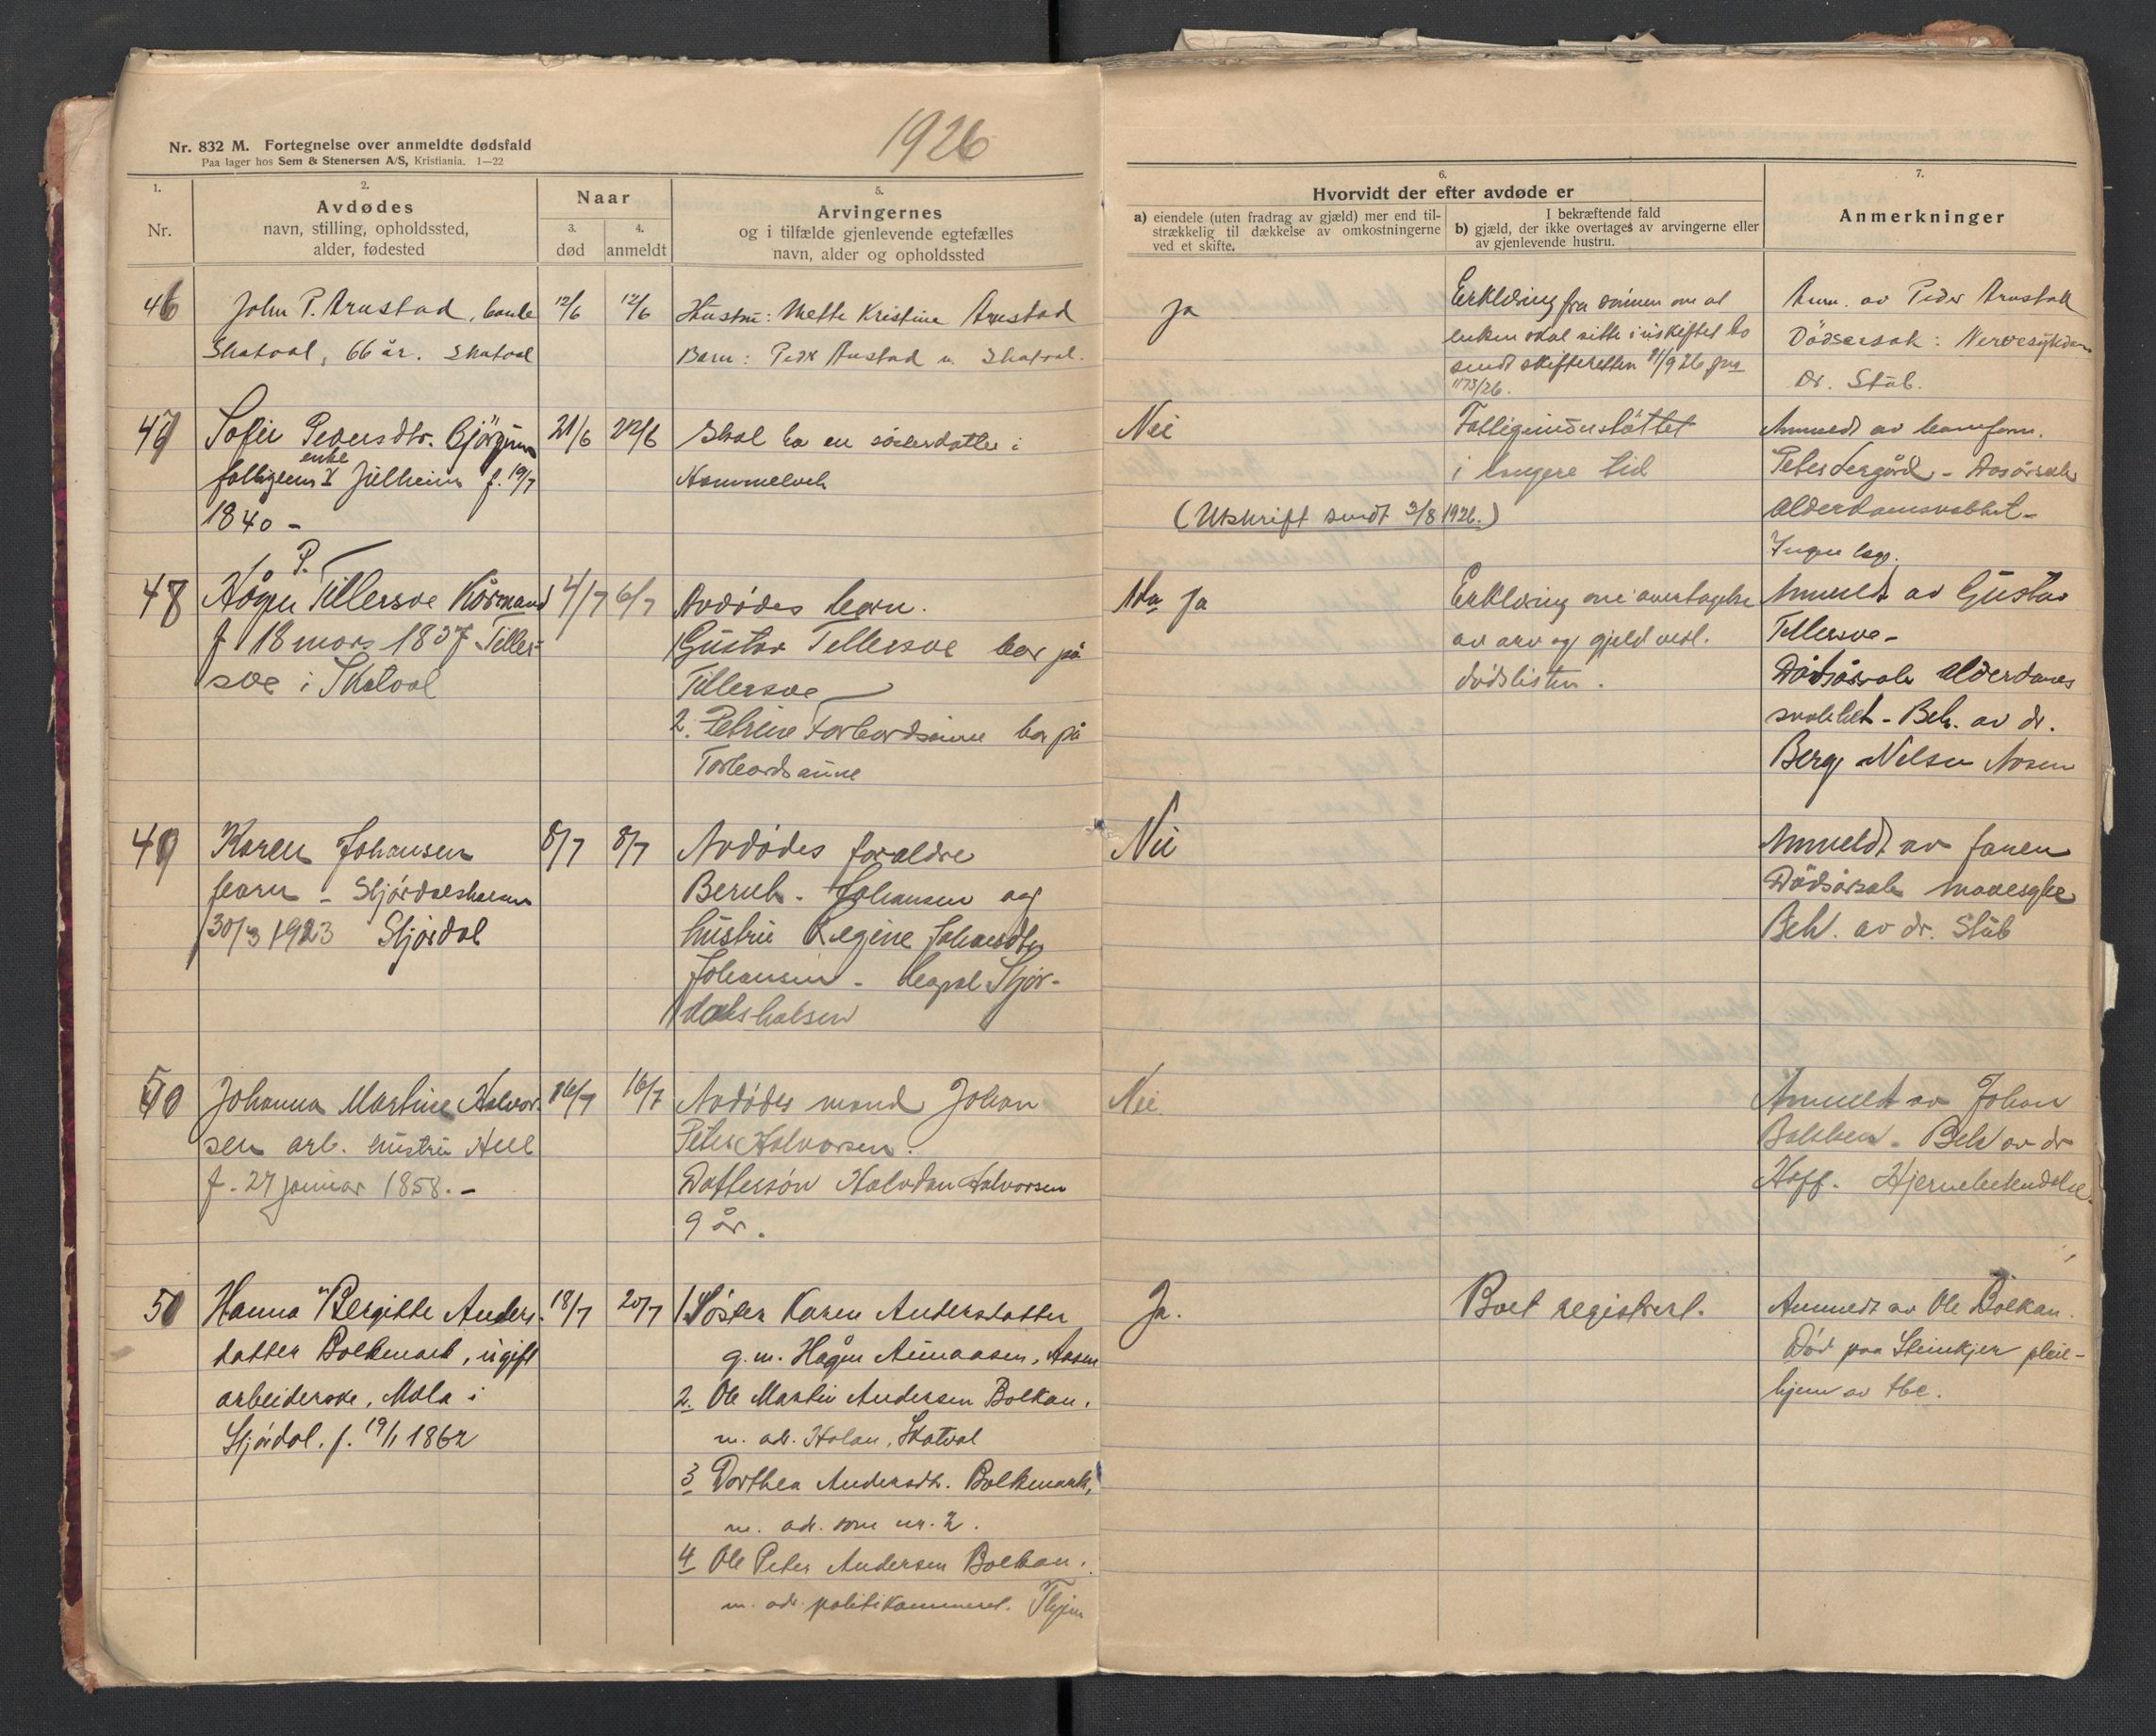 Nr. 832 M. Fortegnelse over anmeldte dødsfald
Paa lager hos Sem & Stenersen A/S, Kristiania. 1—22
1926
1.
Nr.
2.
Avdødes
navn, stilling, opholdssted,
alder, fødested
Naar
3.
død
4.
anmeldt
5.
Arvingernes
og i tilfælde gjenlevende egtefælles
navn, alder og opholdssted
6.
Hvorvidt der efter avdøde er
a) eiendele (uten fradrag av gjæld) mer end til-
strækkelig til dækkelse av omkostningerne
ved et skifte.
I bekræftende fald
b) gjæld, der ikke overtages av arvingerne eller
av gjenlevende hustru.
7.
Anmerkninger
46
John P. Arnstad,
Skatval, 66 år. Skatval
12/6
12/6
Hustru: Mette Kristine Arnstad
Barn: Peder Arnstad Skatval.
Ja
Erklæring fra om at
enken skal sitte i uskiftet bo
sendt skifteretten
1173/26.
Anm. av Peder Arnstad
Dødsorsak: Nervesykdom
Dr. Stub.
47
Sofie Pedersdtr.
enke
Julheim f. 19/7
1840 –
21/6
22/6
Skal ha en søsterdatter i
Hommelvik
Nei
Fattigunderstøttet
i lengere tid
(Utskrift sendt 3/8 1926.)
Anmeldt av
Peter Lergård – Dødsårsak
Alderdomssvakhet –
Ingen
48
P.
Hågen Tillersve Kårmand
f 18 mars 1837 Tiller-
sve i Skatval
4/7
6/7
Avdødes barn.
1 Gustav Tillersve bor på
Tillersve
2. Petrine Forbordsaune bor på
Forbordsaune
Ja
Erklæring om overtagelse
av arv og gjeld vedl.
dødslisten.
Anmeldt av Gustav
Tillersve –
Dødsårsak Alderdoms
svakhet – Beh. av dr.
Berg Nilsen Åsen
49
Karen Johansen
barn – Stjørdalshalsen
30/3 1923 Stjørdal
8/7
8/7
Avdødes foreldre
Bernh. Johansen og
hustru Regine
Johansen – Stjør-
dalshalsen
Nei
Anmeldt av faren
Dødsårsak mavesyke
Beh. av dr. Stub
50
Johanna Martine Halvor-
sen arb. hustru Hell
f. 27 januar 1858. –
16/7
16/7
Avdødes mand Johan
Peter Halvorsen.
Dattersøn Halvdan Halvorsen
9 år.
Nei
Anmeldt av Johan
Bakken – Beh av dr
Hoff. Hjernebetendelse.
51
Hanna Bergitte Anders-
datter Bolkmark, ugift
arbeiderske, Mæla i
Stjørdal. f. 19/1 1862
18/7
20/7
1 Søster Karen Andersdatter
g. m. Hågen Aunaasen, Aasen
2. Ole Martin Andersen Bolkan.
m. adr. Holan, Skatval
3 Dorthea Andersdtr. Bolkmark,
m. adr. som nr. 2.
4 Ole Peter Andersen Bolkan.
m. adr. politikammeret. Thjem
Ja.
Boet registrert.
Anmeldt av Ole Bolkan.
Død paa Steinkjer pleie-
hjem av tbc.